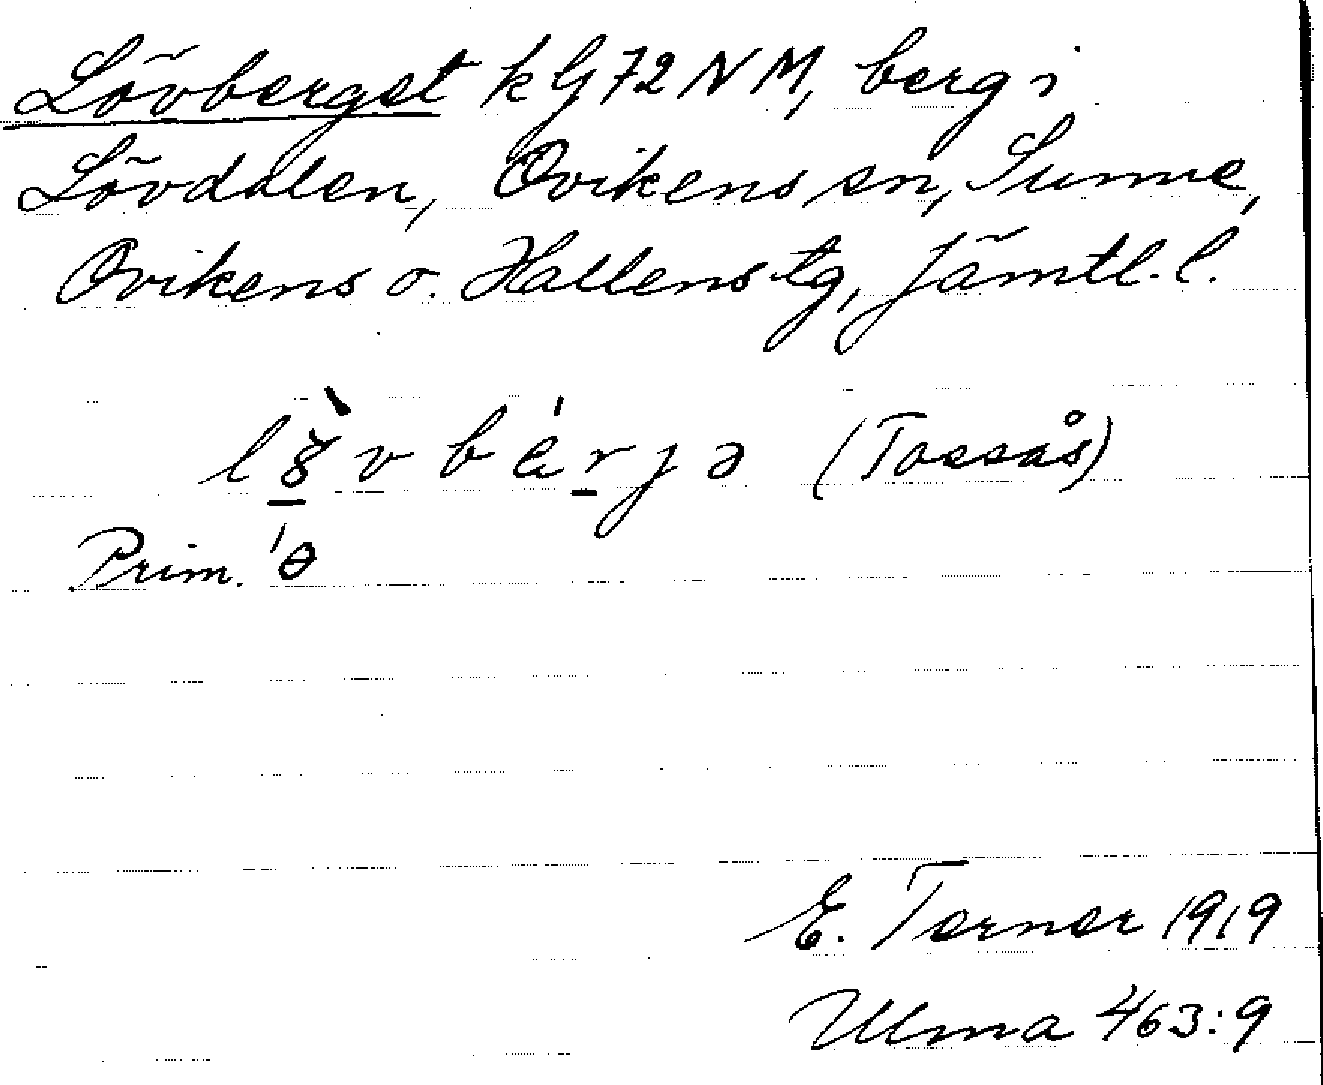 Lövberget k G 72 NM, berg i
Lövdalen, Ovikens sn, Sunne,
Ovikens o. Hallens tg, Jämtl. l.
(Tossås)
Prim.
E. Terner 1919
Ulma 463:9